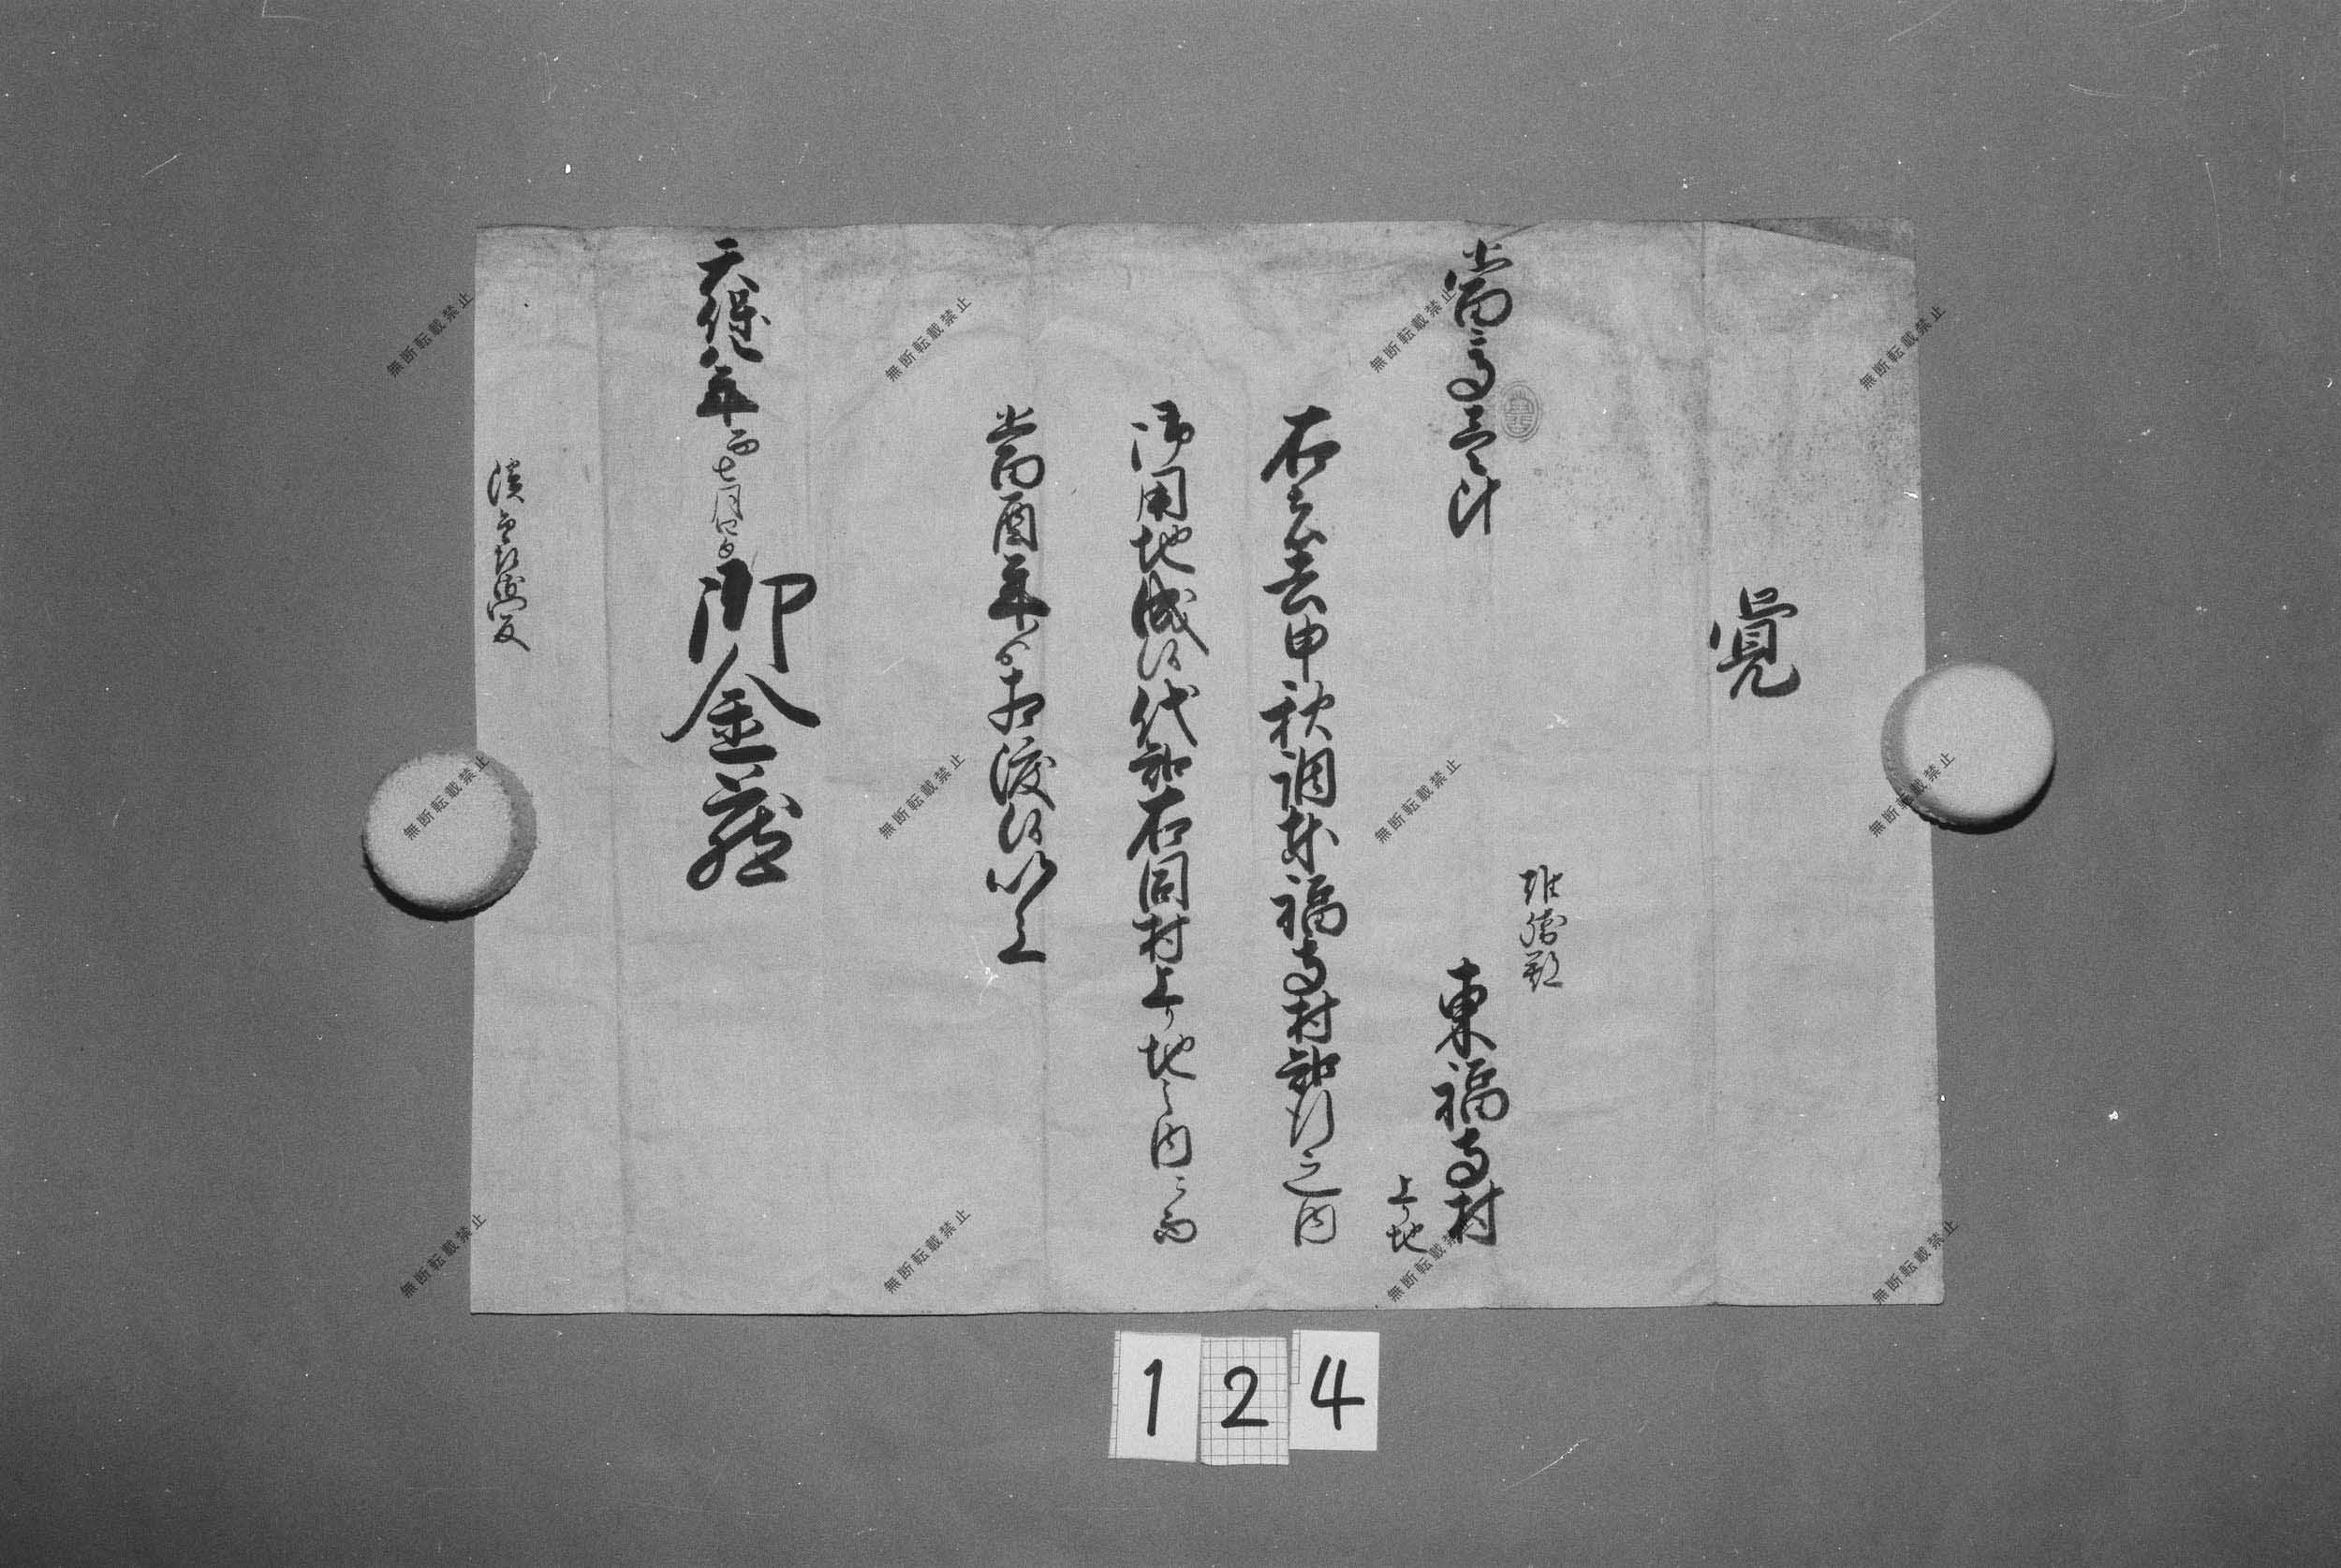 覚
当高壱斗
東福寺村
上り地
右者去申秋調東福寺村知行之内
御用地成候代知右同村上り地之内ニ而
当酉年ゟ相渡候以上
天保八年酉七月四日 御金蔵
1 2 4
無断転載禁止
無断転載禁止
無断転載禁止
無断転載禁止
無断転載禁止
無断転載禁止
無断転載禁止
無断転載禁止
無断転載禁止
無断転載禁止
無断転載禁止
無断転載禁止